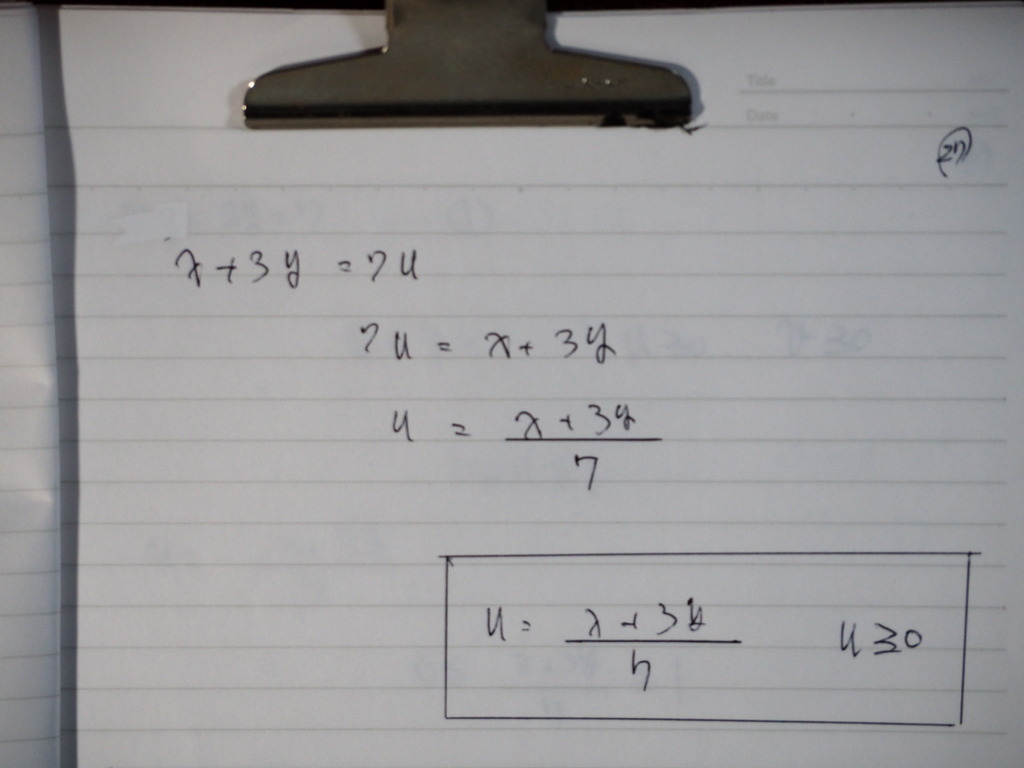 Title
Date
(27)
x + 3y = 7u
7u = x + 3y
u = \frac{x + 3y}{7}
u = \frac{x + 3y}{7} u ≥ 0